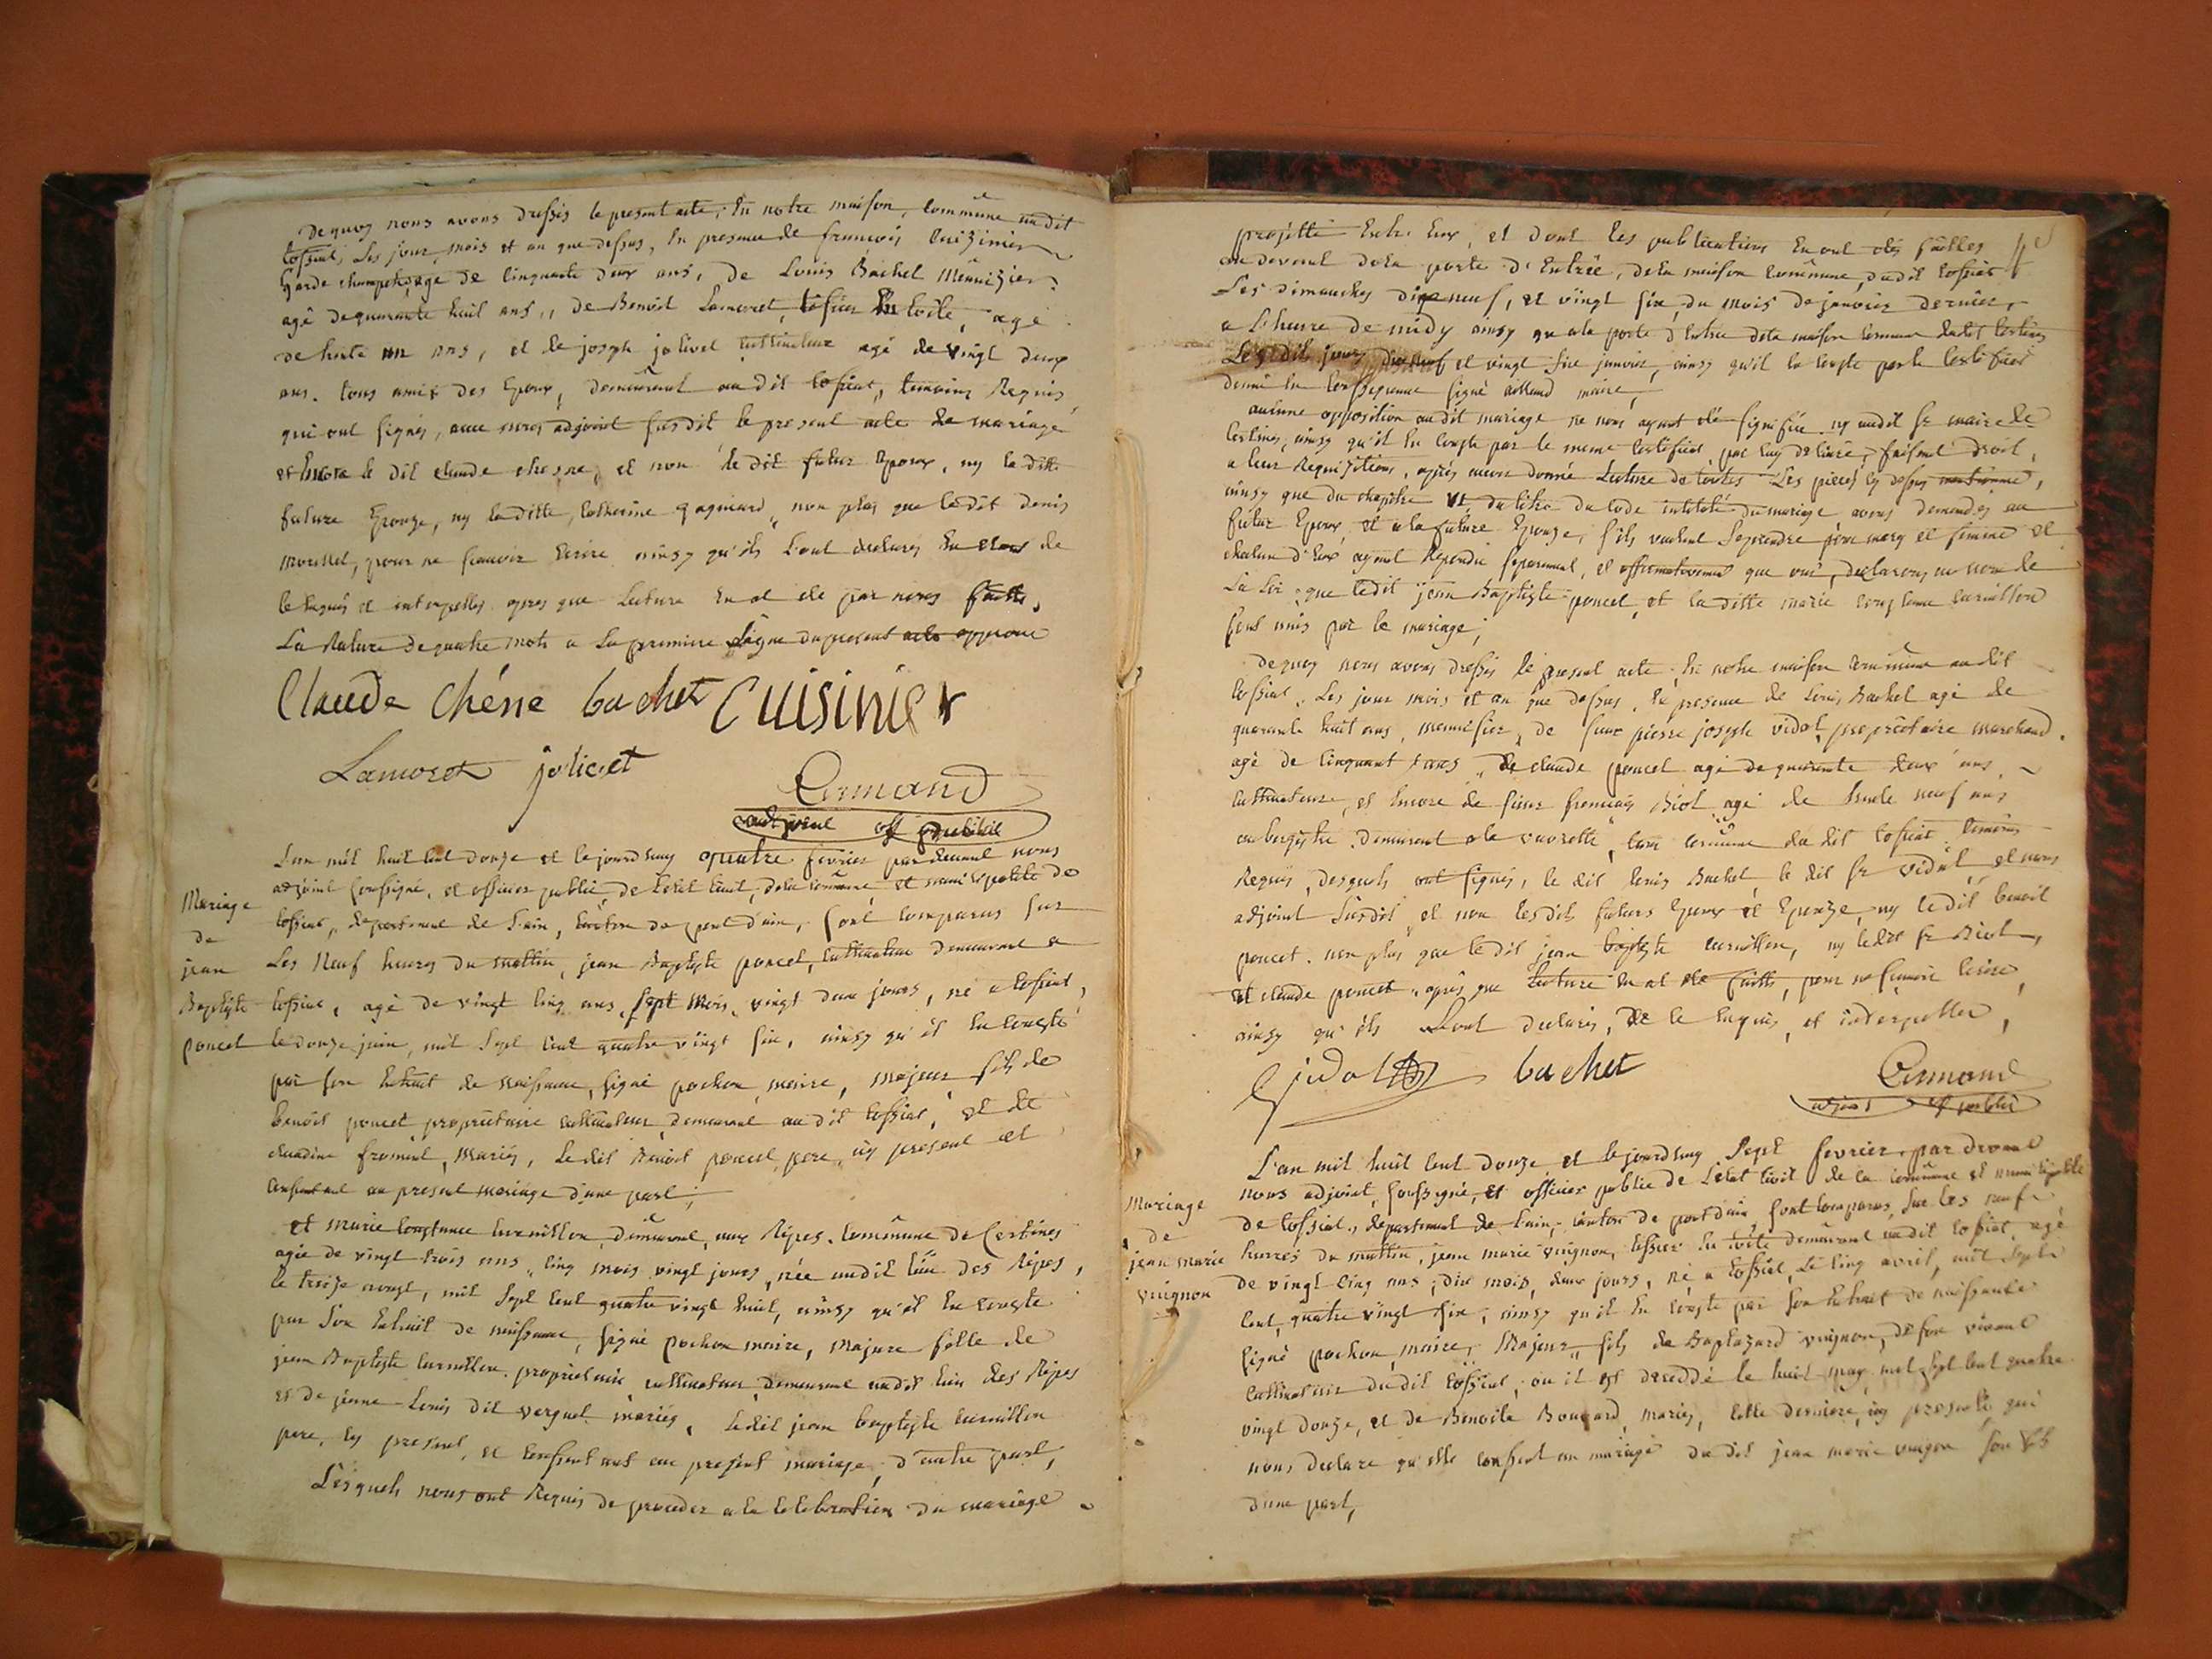 De quoy nous avons dressés le present acte, En notre maison, Commune au dit
tossiat, Les jour mois et an que dessus, En presence de francois Cuizinier
Garde champetre, agé de Cinquante deux ans, de Louis Bachet Menuizier
agé de quarante huit ans, de Benoit Lamoret, tissier En toile, agé
de trente un ans, et de joseph jolivet Cultivateur agé de vingt deux
ans. tous amis des Epoux, demeurant au dit tossiat, temoins Requis,
qui ont signés, avec nous adjoint susdit le present acte de mariage
et Encore le dit Claude chesne, et non le dit futur Epoux, ny la ditte
future Epouze, ny laditte, Catherine gagneard, non plus que ledit Denis
Morellet, pour ne scavoir Ecrire ainsy qu'ils L'ont declarés En etant de
ce Enquis et interpellés apres que Lecture En at eté par nous faitte,
La Rature de quatre mots a La premiere Ligne du present acte approuvé
Claude Chéne bachet Cuisinier
Lamoret jolivet
Ermand
adjoint off public
L'an mil huit Cent douze et le jourd'huy quatre fevrier par devant nous
adjoint soussigné, et officier public, de L'etat Civil, de la Commune et municipalité de
Mariage
de
jean
Baptiste
poncet
tossiat, departement de L'ain, Canton de pont d'ain, sont Comparus sur
Les Neuf heures du mattin, jean Baptiste poncet, Cultivateur demeurant a
tossiat, agé de vingt Cinq ans, sept mois, vingt deux jours, né a tossiat,
le douze juin, mil Sept Cent quatre vingt six, ainsy qu'il En Conste
par son Extrait de Naissance, signé pochon maire, majeur fils de
benoit poncet proprietaire Cultivateur demeurant au dit tossiat, et de
claudine froment, Mariés, Le dit Benoit poncet pere, icy present et
Consentant au present mariage d'une part;
et marie Constance Curnillon, demeurant, aux Ripes, Commune de Certines
agée de vingt trois ans, Cinq mois vingt jours, née audit lieu des Ripes,
le treize aougt, mil Sept Cent quatre vingt huit, ainsy qu'il En Conste
par Son Extrait de naissance, signé pochon maire, Majeure fille de
jean Baptiste Curnillon proprietaire Cultivateur, demeurant audit lieu des Ripes
et de jeanne Louis dit verguet mariés, Ledit jean baptiste Curnillon
pere, icy present, et Consentant au present mariage, d'autre part,
Lesquels nous ont Requis de proceder a la Celebration du mariage
projetté Entre Eux, et dont les publications En ont étés faittes
au devant de la porte d'Entrée, de la maison Commune, du dit tossiat
Les dimanches dix neuf, et vingt six, du mois de janvier dernier,
a L'heure de midy ainsy qu'a la porte d'Entrée de la maison Commune dudit Certines
Lesdits jours dix neuf et vingt six janvier, ainsy qu'il En Conste par le Certificat
signé maire,
aucune opposition au dit mariage ne nous ayant eté signifiée, ny audit sr maire de
Certines, ainsy qu'il En Conste par le meme Certificat, par luy delivré, faisant droit,
a leur Requizitions, après avoir donné Lecture de toutes Les pieces cy dessus mentionné,
ainsy que du chapitre VI, du titre du Code intitulé du mariage avons demandés au
futur Epoux et a la future Epouze, s'ils veulent Se prendre pour mary et femme et
chacun d'Eux ayant Repondu separement, et affirmativement que oui, declarons au nom de
La Loi que ledit jean Baptiste poncet, et la ditte marie Constance Curnillon
sont unis par le mariage;
De quoy nous avons dressés le present acte, En notre maison Commune audit
tossiat, Les jour mois et an que dessus, En presence de Louis Bachet agé de
quarante huit ans, menuisier, de sieur pierre joseph vidal, proprietaire marchand,
agé de Cinquant ans, de claude poncet agé de quarante deux ans
Cultivateur, et Encore de sieur francois Biot agé de trente neuf ans
aubergiste demeurant a la vavrette, tous Commune du dit tossiat temoins
Requis, desquels ont signés, le dit Louis Bachet, le dit sr vidal, et nous
adjoint Susdit, et non lesdits futurs Epoux et Epouze, ny ledit benoit
poncet, non plus que le dit jean baptiste Curnillon, ny ledit sr Biot,
et claude poncet, après que Lecture En at eté faitte, pour ne scavoir Ecrire
ainsy qu'ils L'ont declarés, de ce Enquis, et interpeller,
vidal bachet
Ermand
adjoint off public
L'an mil huit Cent douze et le jourd'huy Sept fevrier, par devant
nous adjoint, soussigné, et officier public de L'etat Civil de la Commune et municipalité
Mariage
de
jean marie
vuignon
de tossiat, departement de L'ain, Canton de pont d'ain, sont Comparus, Sur les neuf
heures du mattin, jean marie vuignon, tissier En toile demeurant audit tossiat, agé
de vingt Cinq ans, dix mois, deux jours, né a tossiat, Le Cinq avril, mil Sept
Cent, quatre vingt six, ainsy qu'il En Conste par Son Extrait de naissance
signé pochon, maire, Majeur, fils de Baptazard vuignon, de son vivant
Cultivateur du dit tossiat, ou il est decedde le huit may mil Sept Cent quatre
vingt douze, et de Benoite Bouvard, mariés, Cette derniere, icy presente qui
nous declare qu'elle Consent au mariage du dit jean marie vuignon son fils
d'une part,